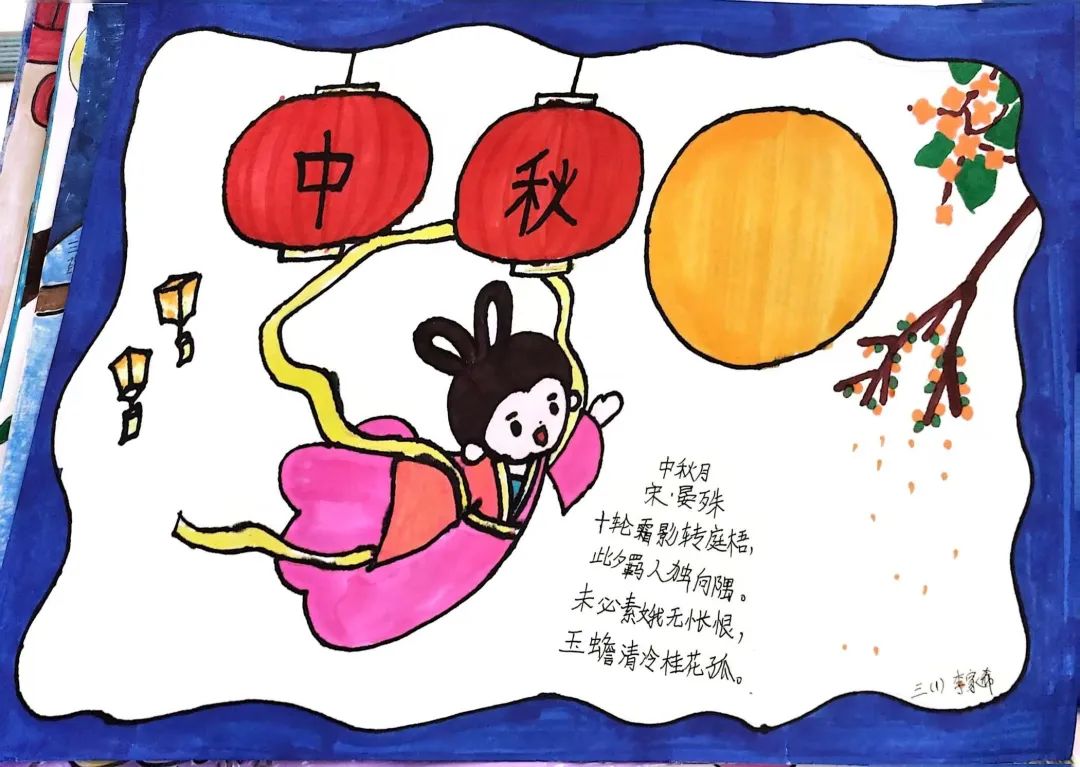 中
秋
中秋月
宋·晏殊
十轮霜影转庭梧，
此夕羁人独向隅。
未必素娥无怅恨，
玉蟾清冷桂花孤。
三（1） 李家希